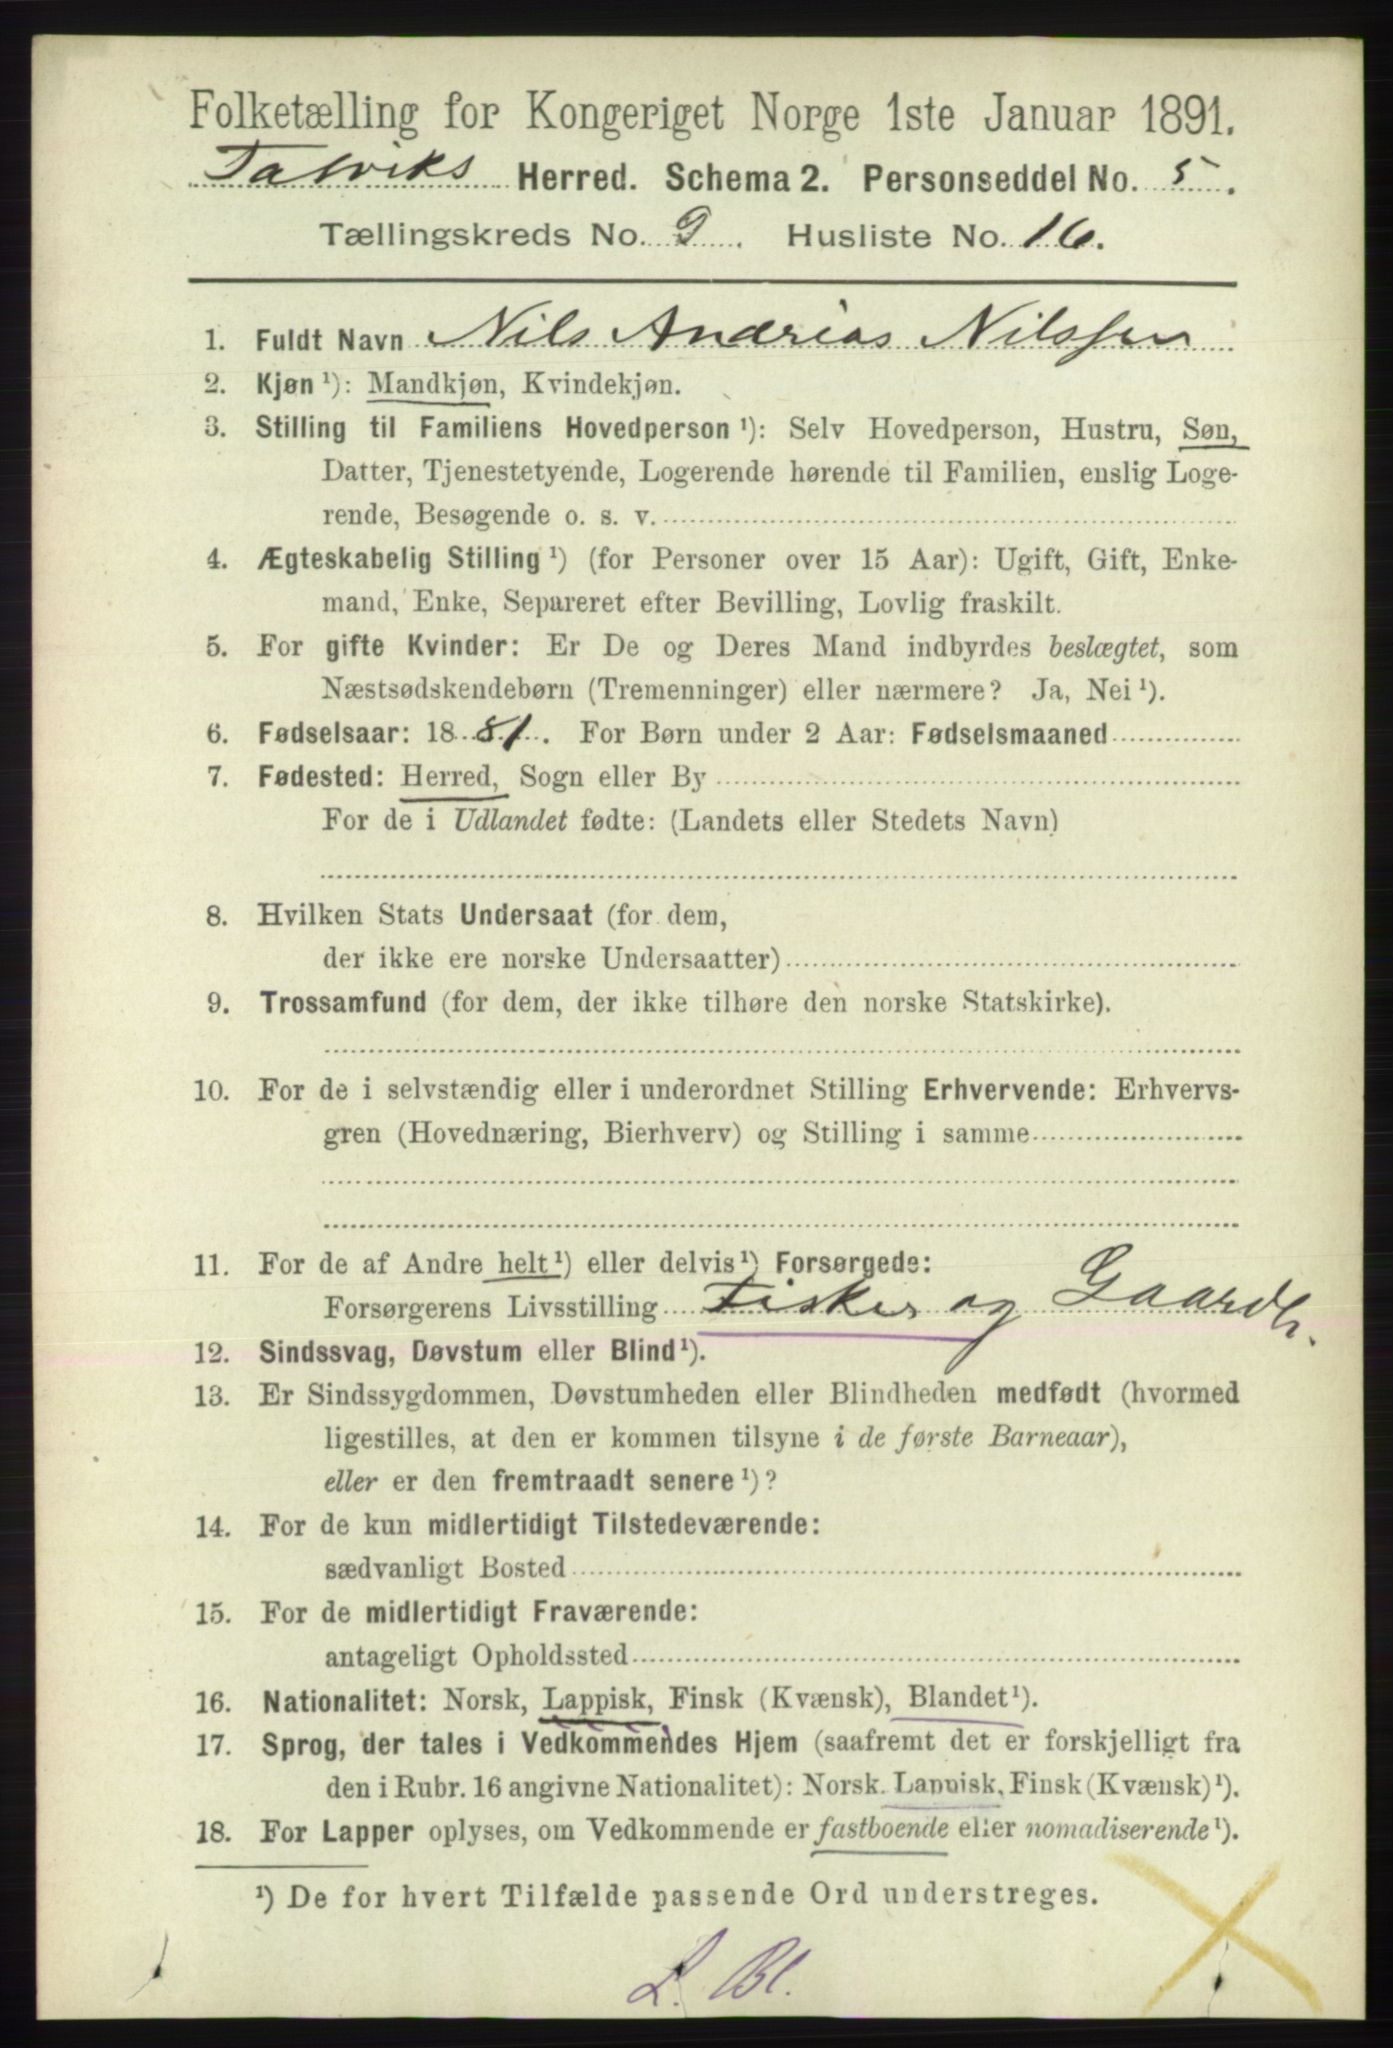 Folketælling for Kongeriget Norge 1ste Januar 1891.
Talviks Herred. Schema 2. Personseddel No. 5.
Tællingskreds No. 9. Husliste No. 16.
1. Fuldt Navn Nils Andreas Nilssen
2. Kjøn ¹): Mandkjøn, Kvindekjøn.
3. Stilling til Familiens Hovedperson ¹): Selv Hovedperson, Hustru, Søn,
Datter, Tjenestetyende, Logerende hørende til Familien, enslig Loge-
rende, Besøgende o. s. v.
4. Ægteskabelig Stilling ¹) (for Personer over 15 Aar): Ugift, Gift, Enke-
mand, Enke, Separeret efter Bevilling, Lovlig fraskilt.
5. For gifte Kvinder: Er De og Deres Mand indbyrdes beslægtet, som
Næstsødskendebørn (Tremenninger) eller nærmere? Ja, Nei ¹).
6. Fødselsaar: 1881. For Børn under 2 Aar: Fødselsmaaned
7. Fødested: Herred, Sogn eller By
For de i Udlandet fødte: (Landets eller Stedets Navn)
8. Hvilken Stats Undersaat (for dem,
der ikke ere norske Undersaatter)
9. Trossamfund (for dem, der ikke tilhøre den norske Statskirke).
10. For de i selvstændig eller i underordnet Stilling Erhvervende: Erhvervs-
gren (Hovednæring, Bierhverv) og Stilling i samme
11. For de af Andre helt ¹) eller delvis ¹) Forsørgede:
Forsørgerens Livsstilling Fisker og Gaardb.
12. Sindssvag, Døvstum eller Blind ¹).
13. Er Sindssygdommen, Døvstumheden eller Blindheden medfødt (hvormed
ligestilles, at den er kommen tilsyne i de første Barneaar),
eller er den fremtraadt senere ¹)?
14. For de kun midlertidigt Tilstedeværende:
sædvanligt Bosted
15. For de midlertidigt Fraværende:
antageligt Opholdssted
16. Nationalitet: Norsk, Lappisk, Finsk (Kvænsk), Blandet ¹).
17. Sprog, der tales i Vedkommendes Hjem (saafremt det er forskjelligt fra
den i Rubr. 16 angivne Nationalitet): Norsk. Lappisk, Finsk (Kvænsk) ¹).
18. For Lapper oplyses, om Vedkommende er fastboende eller nomadiserende ¹).
¹) De for hvert Tilfælde passende Ord understreges.
L. Bl.